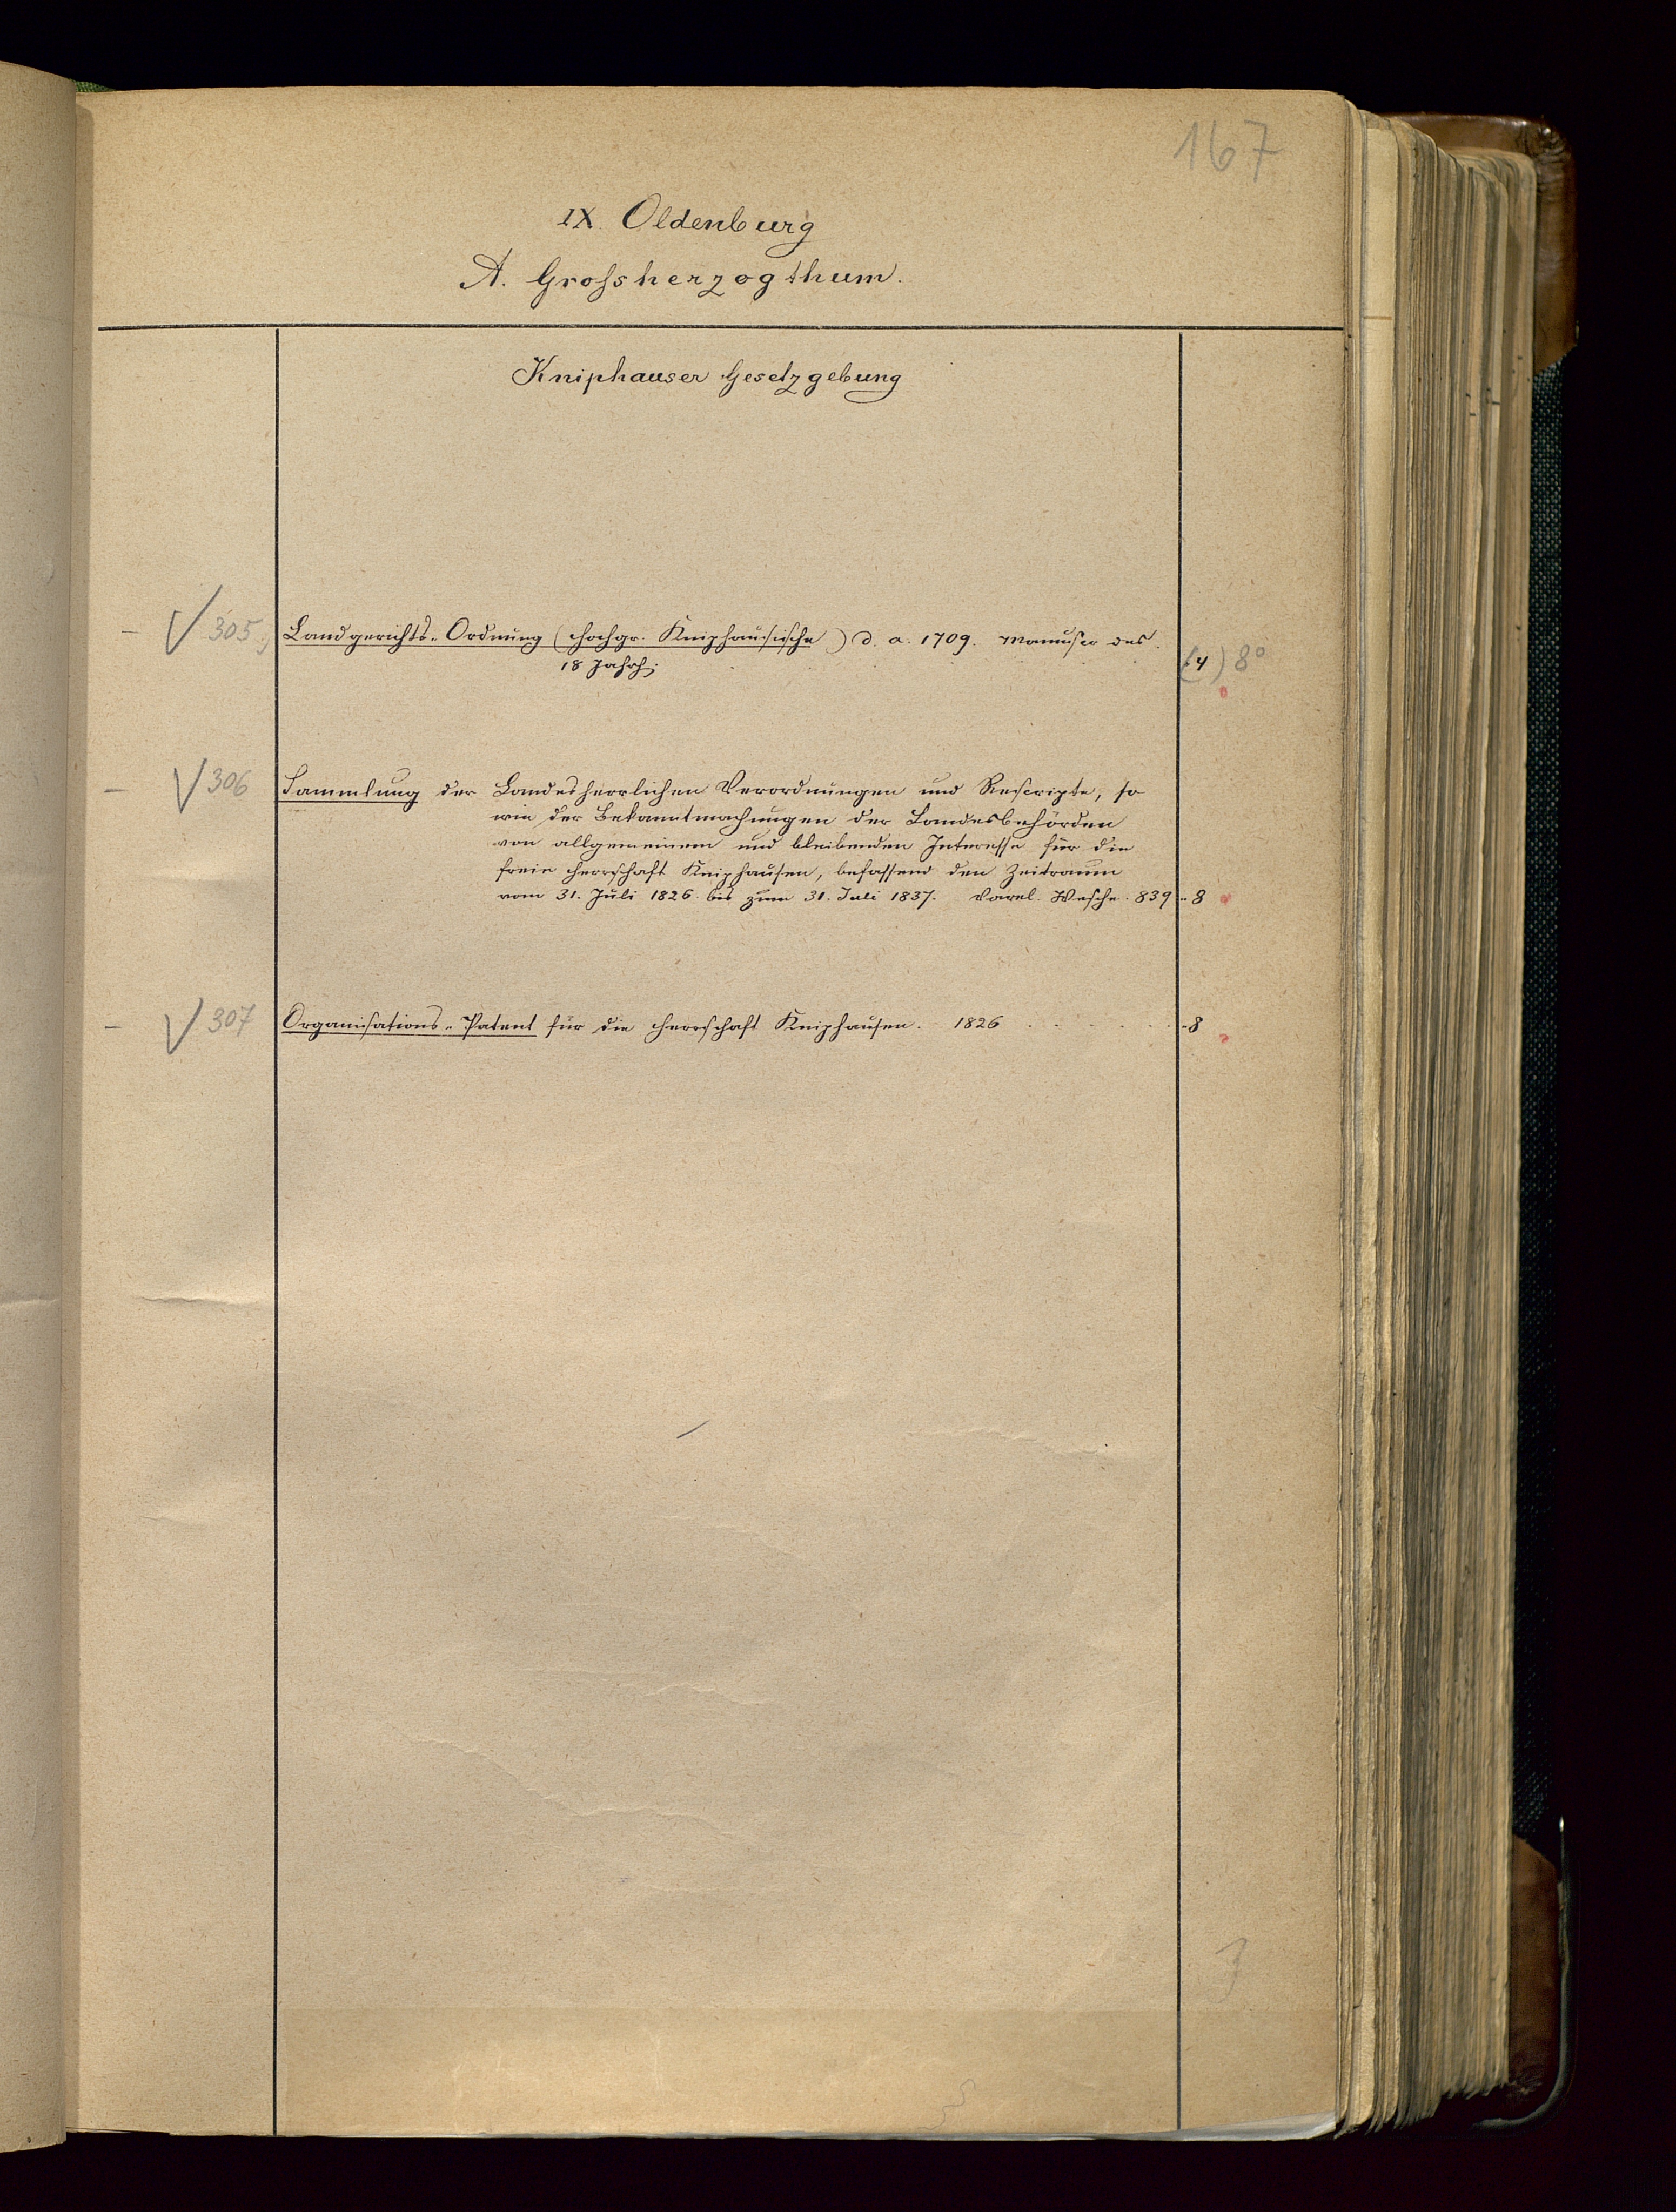 167
IX. Oldenburg
A. Groſsherzogthum.
Kniphauser Gesetzgebung
– √ 305, Landgerichts-Ordnung (Hochgr. Kniphausische) d. a. 1709. Manuscr des
18 Jahrh; (4) 8°
– √ 306 Sammlung der Landesherrlichen Verordnungen und Rescripte, so
wie der Bekanntmachungen der Landesbehörden
von allgemeinem und bleibenden Interesse für die
freie Herrschaft Kniphausen, befassend den Zeitraum
vom 31. Juli 1826 bis zum 31. Juli 1837. Varel. Wesche. 839 -8
– √ 307 Organisations-Patent für die Herrschaft Kniphausen. 1826 . . . . . -8
3